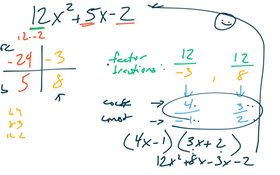 12x² + 5x - 2
12·-2
-24 | -3
5 | 8
factor fractions: 12/-3 , 12/8
coeff → 4 3
const → -1 2
(4x-1)(3x+2)
12x²+8x-3x-2